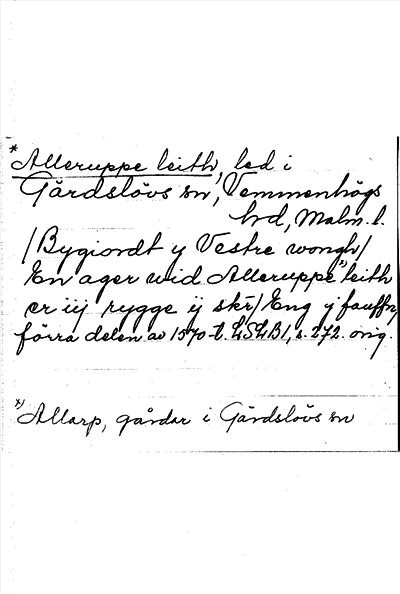 * Alleruppe leith, led i
Gärdslövs sn, Vemmenhögs
hd, Malm. l.
/Bygiordt y Vestre wongh/
En ager wid Alleruppe x) leith
er iij rygge ij skr/Eng y fauffn,
förra delen av 1570-t. LSLB1, s. 272. orig.
x) Allarp, gårdar i Gärdslövs sn